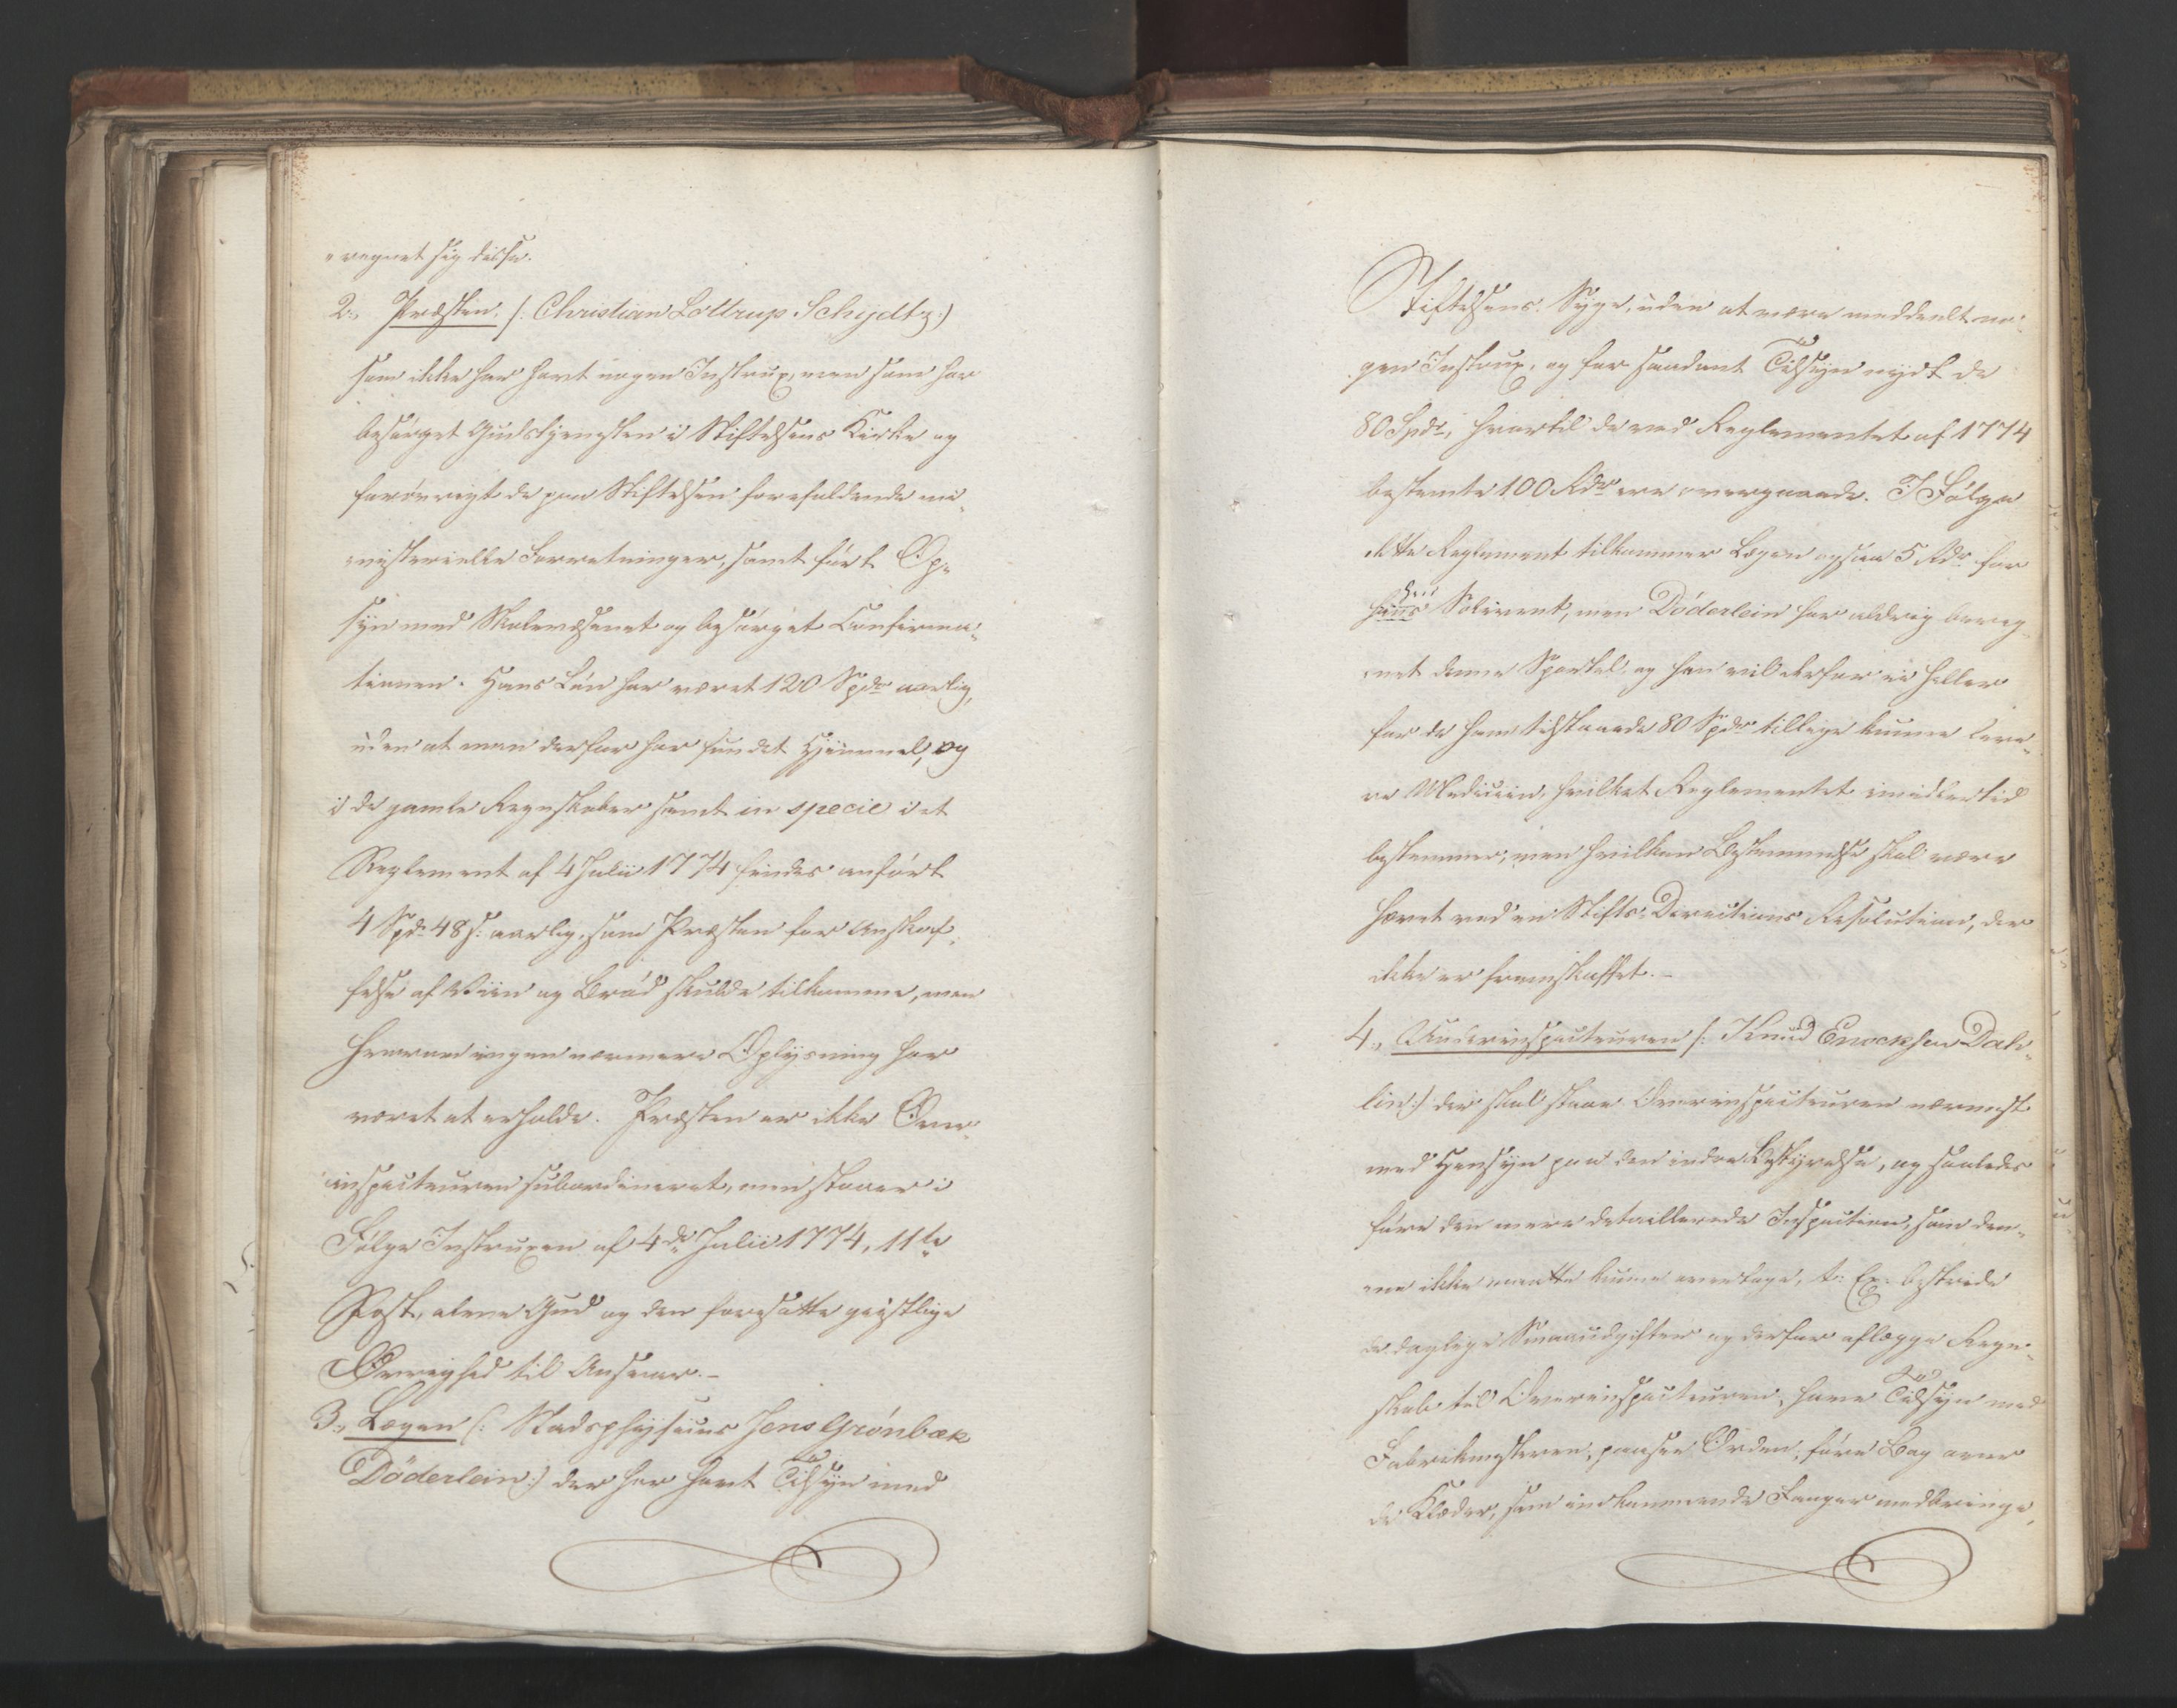 „regnet sig disse.
2., Præsten. /: Christian Lottrup Schydtz:/
som ikke har havt nogen Instrux, men som har
besørget Gudstjenesten i Stiftelsens Kirke og
forøvrigt de paa Stiftelsen forefaldende mi„
„nisterielle Forretninger, samt ført Op„
syn med Skolevæsenet og besørget Confirma„
tionen. Hans Løn har været 120 Spdr aarlig,
uden at man derfor har fundet Hjemmel, og
i de gamle Regnskaber samt in specie i et
Reglement af 4 Julii 1774 findes anført
4 Spdr 48 s: aarlig, som Præsten for Anskaf„
felse af Viin og Brød skulde tilkomme, men
hvorom ingen nærmere Oplysning har
været at erholde. Præsten er ikke Over„
inspecteuren subordineret, men staaer i
Følge Instruxen af 4de Julii 1774, 11te
Post, alene Gud og den foresatte geistlige
Øvrighed til Ansvar.-
3., Lægen /: Stadsphysicus Jens Grønbæk
Døderlein:/ der har havt Tilsyn med
Stiftelsens Syge, uden at være meddeelt no„
gen Instrux, og for saadant Tilsyn nydt de
80 Spdr, hvortil de ved Reglementet af 1774
bestemte 100 Rdr ere overgaaede. I Følge
dette Reglement tilkommer Lægen ogsaa 5 Rdr for
hans Visum, men Døderlein har aldrig bereg„
„net denne Sportel, og han vil derfor ei heller
for de ham tilstaaede 80 Spdr tillige kunne leve„
re Medicin, hvilket Reglementet imidlertid
bestemmer, men hvilken Bestemmelse skal være
hævet ved en Stifts-Directions Resolution, der
ikke er fremskaffet.-
4., Underinspecteuren /: Knud Enochsen Dah„
lin:/ der skal staae Overinspecteuren nærmest
med Hensyn paa den indre Bestyrelse, og saaledes
føre den mere detaillerede Inspection, som den„
ne ikke maatte kunne overtage, t: Ex: bestride
de daglige Smaaudgifter og derfor aflægge Regn„
skab til Overinspecteuren, have Tilsyn med
Fabrikmesteren, paasee Orden, føre Bog over
de Klæder, som indkommende Fanger medbringe,